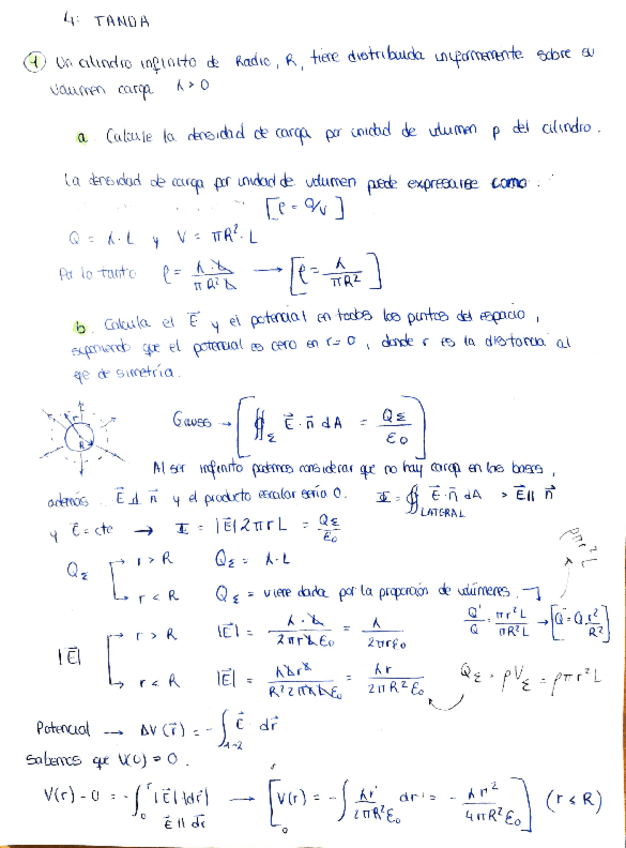 4: TANDA
1 Un cilindro infinito de Radio, R, tiene distribuida uniformemente sobre su
volumen carga λ > 0
a Calcule la densidad de carga por unidad de volumen ρ del cilindro.
La densidad de carga por unidad de volumen puede expresarse como:
[ρ = Q/V]
Q = λ·L y V = πR²·L
Por lo tanto ρ = λ·L / πR²L → [ρ = λ / πR²]
b. Calcula el E⃗ y el potencial en todos los puntos del espacio,
suponiendo que el potencial es cero en r=0, donde r es la distancia al
eje de simetría.
Gauss → [∯_Σ E⃗·n⃗ dA = Q_Σ / ε₀]
Al ser infinito podemos considerar que no hay carga en las bases,
además E⃗ ⊥ n⃗ y el producto escalar sería 0. Φ = ∯_LATERAL E⃗·n⃗ dA > E⃗ ∥ n⃗
y E⃗ = cte → Φ = |E⃗| 2πrL = Q_Σ / ε₀
ρπr²L
Q_Σ r > R Q_Σ = λ·L
r < R Q_Σ = viene dada por la proporción de volúmenes.
Q'/Q = πr²L / πR²L → [Q' = Q·r²/R²]
|E⃗| r > R |E⃗| = λ·L / 2πrLε₀ = λ / 2πrε₀
r < R |E⃗| = λLr² / R²2πrLε₀ = λr / 2πR²ε₀
Q_Σ = ρV_Σ = ρπr²L
Potencial → ΔV(r⃗) = -∫_1→2 E⃗ dr⃗
Sabemos que V(0) = 0.
V(r) - 0 = -∫₀^r |E⃗| |dr⃗| → [V(r) = -∫₀^r λr' / 2πR²ε₀ dr' = - λr² / 4πR²ε₀] (r ≤ R)
E⃗ ∥ dr⃗